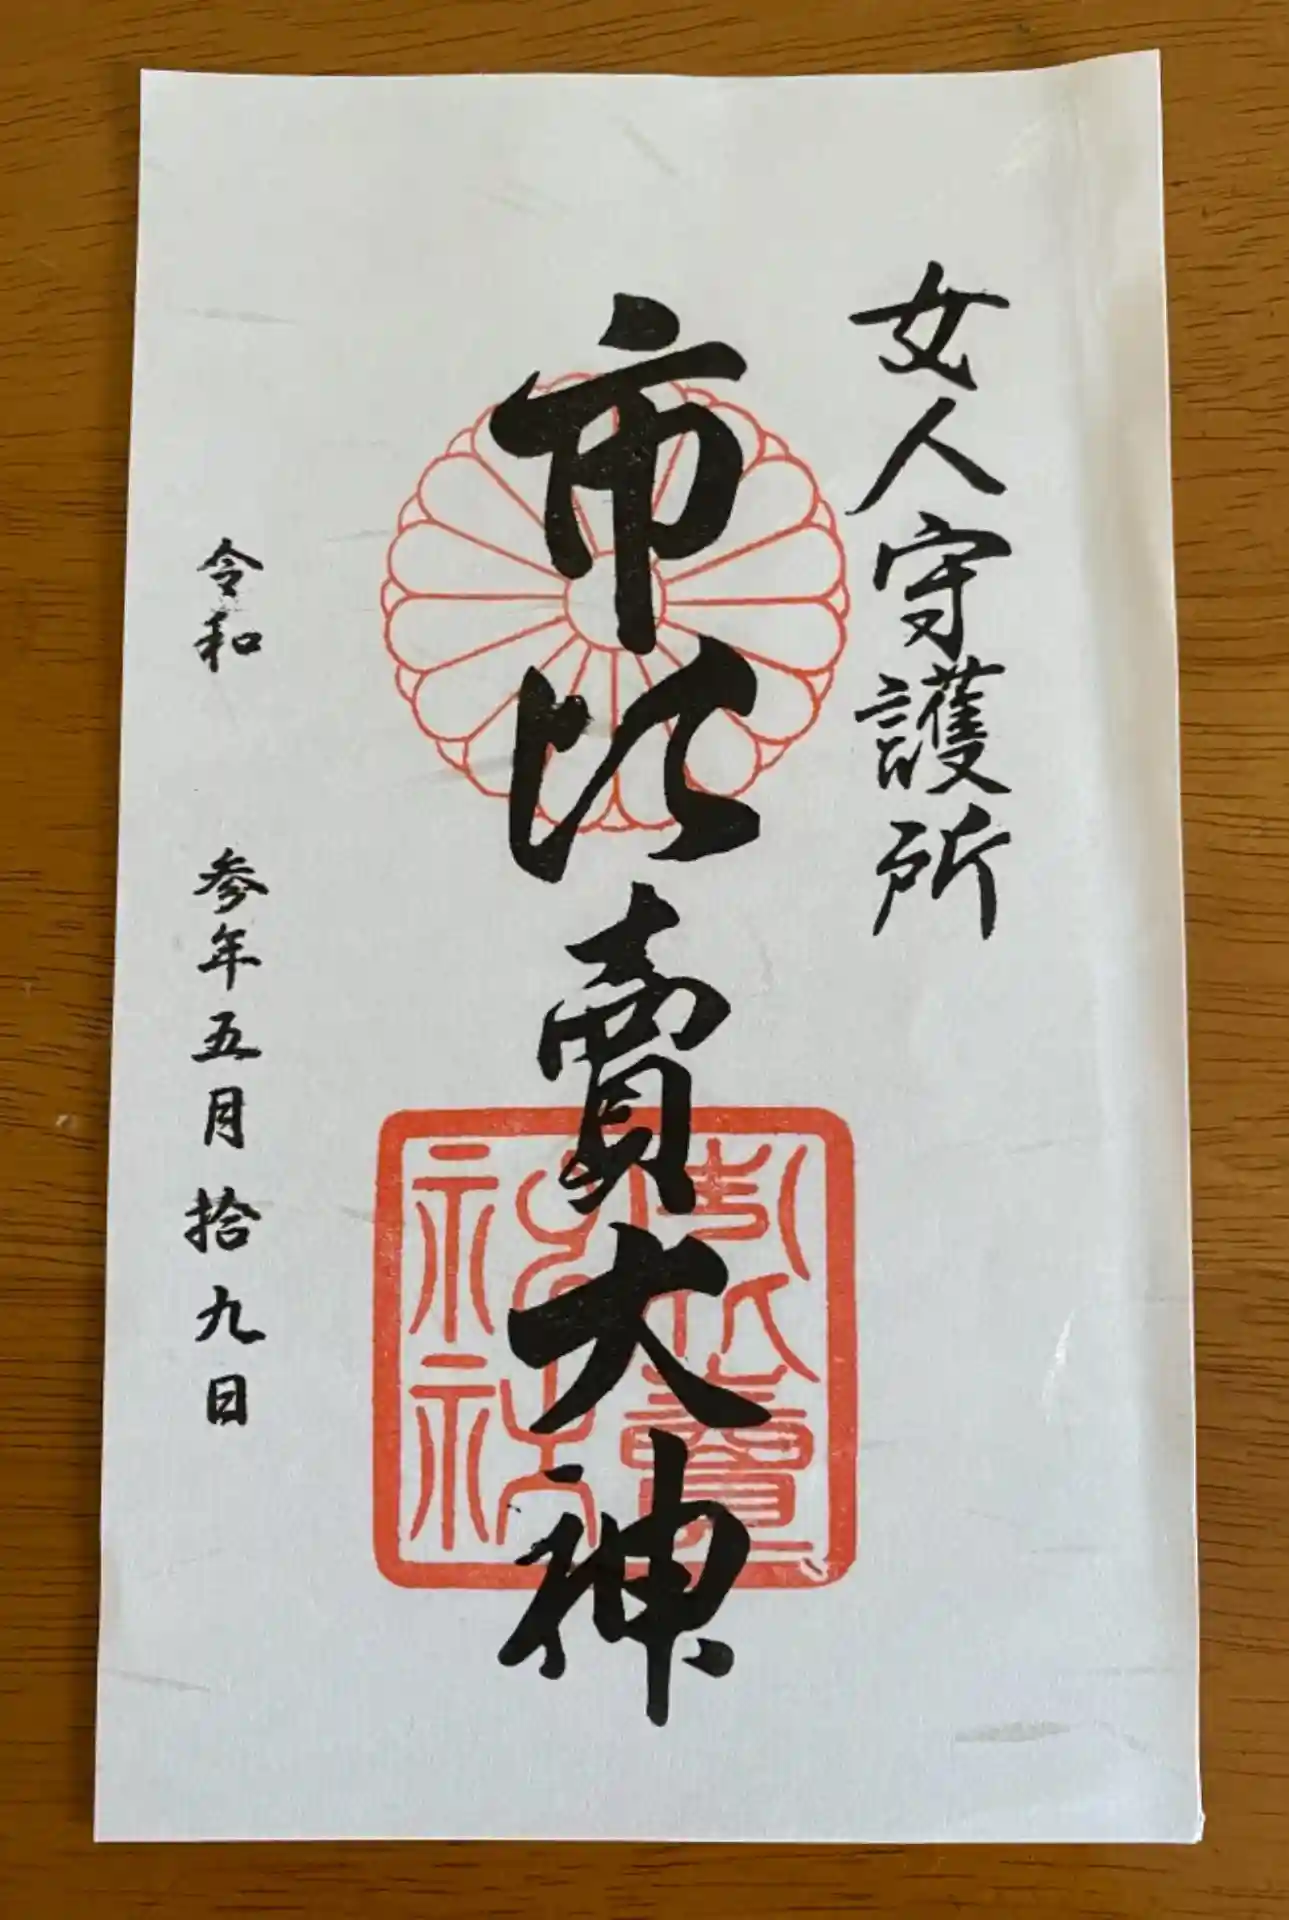 女人守護所
市比賣大神
市比賣神社
令和 参年五月拾九日